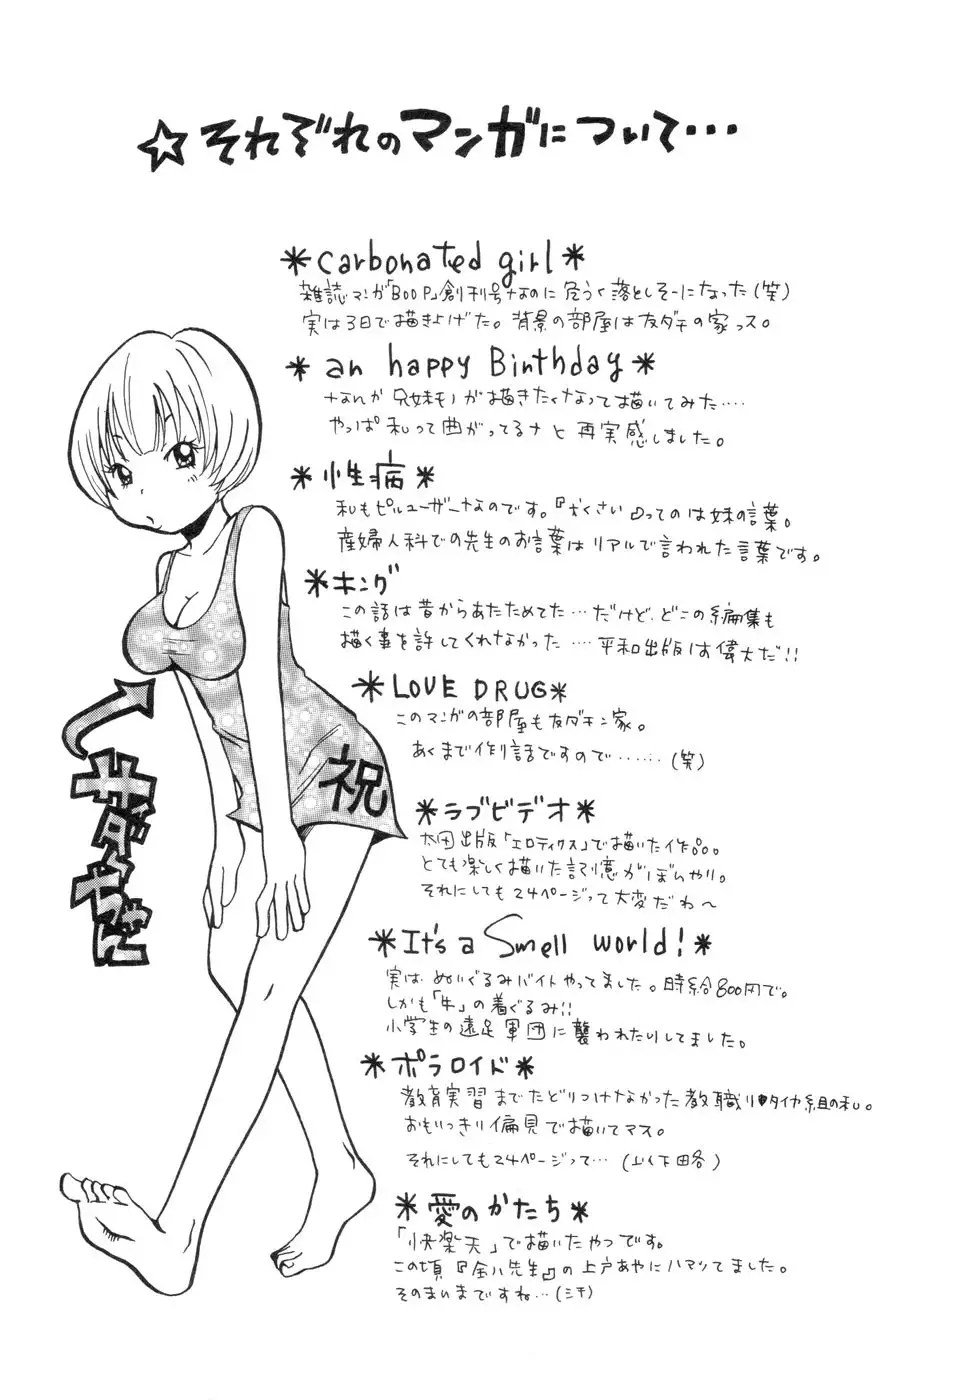 ☆それぞれのマンガについて・・・
*carbonated girl*
雑誌マンガ「BOOP」創刊号なのに危うく落としそーになった(笑)
実は3日で描きよげた。背景の部屋は友ダチの家っス。
*an happy Birthday*
なんか兄妹モノが描きたくなって描いてみた‥‥
やっぱ私って曲がってるナと再実感しました。
*性病*
私もピルユーザーなのです。『くさい』ってのは妹の言葉。
産婦人科での先生のお言葉はリアルで言われた言葉です。
*キング
この話は昔からあたためてた…だけど、どこの編集も
描く事を許してくれなかった‥‥平和出版は偉大だ!!
*LOVE DRUG*
このマンガの部屋も友ダチン家。
あくまで作り話ですので……(笑)
*ラブビデオ*
太田出版「エロティクス」で描いた作品。。
とても楽しく描いた記憶がぼんやり。
それにしても24ページって大変だわ〜
*It's a Smell world!*
実は ぬいぐるみバイトやってました。時給800円で。
しかも「牛」の着ぐるみ!!
小学生の遠足軍団に襲われたりしてました。
*ポラロイド*
教育実習までたどりつけなかった教職リタイヤ組の私。
おもいっきり偏見で描いてマス。
それにしても24ページって…(以下略)
*愛のかたち*
「快楽天」で描いたやつです。
この頃『金八先生』の上戸あやにハマッてました。
そのまいまですね…(ミキ)
サダちゃん
祝